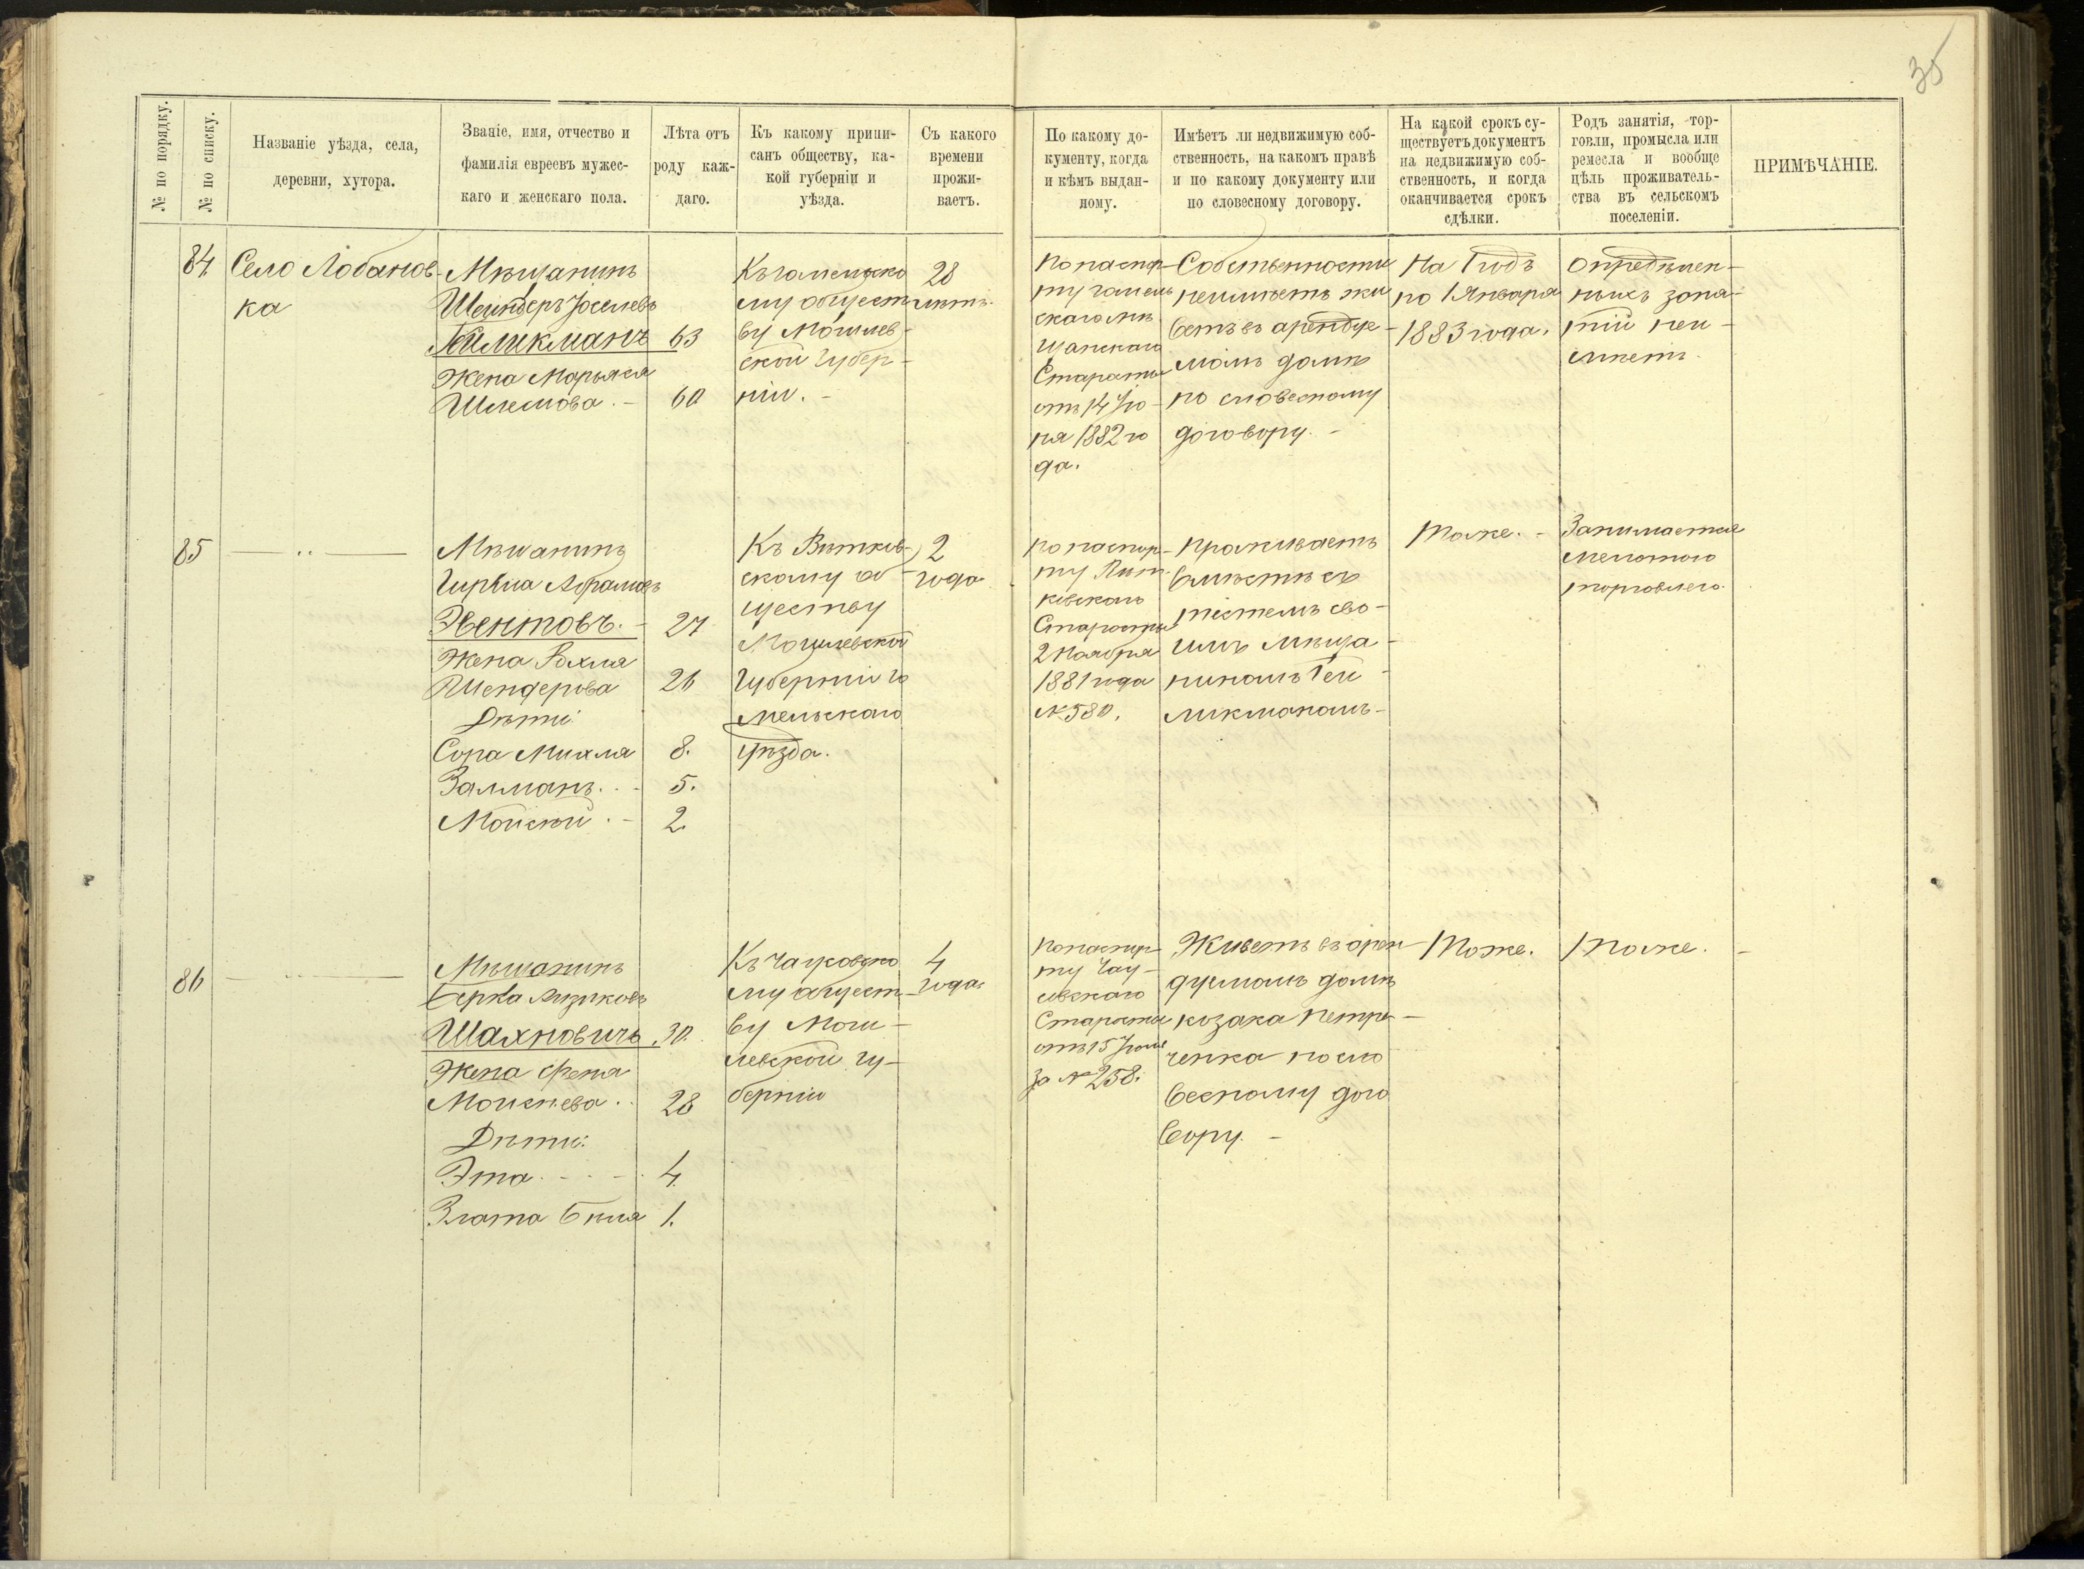 35
№ по порядку.
№ по списку.
Названіе уѣзда, села,
деревни, хутора.
Званіе, имя, отчество и
фамилія евреевъ мужес-
каго и женскаго пола.
Лѣта отъ
роду каж-
даго.
Къ какому припи-
санъ обществу, ка-
кой губерніи и
уѣзда.
Съ какого
времени
прожи-
ваетъ.
По какому до-
кументу, когда
и кѣмъ выдан-
ному.
Имѣетъ ли недвижимую соб-
ственность, на какомъ правѣ
и по какому документу или
по словесному договору.
На какой срокъ су-
ществуетъ документъ
на недвижимую соб-
ственность, и когда
оканчивается срокъ
сдѣлки.
Родъ занятія, тор-
говли, промысла или
ремесла и вообще
цѣль проживатель-
ства въ сельскомъ
поселеніи.
ПРИМѢЧАНІЕ.
84
Село Лобанов-
ка
Мѣщанинъ
Шендеръ Іоселевъ
Гейликманъ 63
Жена Марьяся
Шлемова. - 60
Къ гомельско
му общест-
ву Могилев-
ской Губер-
ніи. -
28
лѣтъ.
По паспор-
ту гомель
скаго мѣ
щанскаго
Старосты
отъ 14 Ію-
ня 1882 го
да.
Собственности
неимѣетъ жи
ветъ въ арендуе-
момъ домѣ
по словесному
договору. -
На Годъ
по 1 Января
1883 года.
Опредѣлен-
ныхъ заня-
тій неи-
мѣетъ.
85
— „ —
Мѣщанинъ
Абрамовъ
Эвентовъ. - 27
Жена Рохля
Шендерова 26
Дѣти:
Сора Михля 8.
Залманъ. - 5.
Мойсей. - 2.
Къ Вѣтков-
скому об-
ществу
Могилевской
Губерніи Го
мельскаго
Уѣзда.
2
года
По паспор-
ту Вѣт-
ковскаго
Старосты
2 Ноября
1881 года
№ 580.
Проживаетъ
вмѣстѣ съ
тестемъ сво-
имъ мѣща-
ниномъ Гей-
ликманомъ-
Тоже. -
Занимается
мелочною
торговлею.
86
— „ —
Мѣщанинъ
Берка
Шахновичъ 30.
Жена Феня
Моисеева. 28
Дѣти:
Эта - - - 4.
Злата Бейля 1.
Къ Чаусовско
му общест-
ву Моги-
левской гу-
берніи
4
года
По паспор-
ту Чау-
совскаго
Старосты
отъ 15 Іюля
за № 258.
Живетъ въ арен
думомъ домѣ
козака Петри-
ченка посло
весному дого
вору. -
Тоже.
Тоже. -